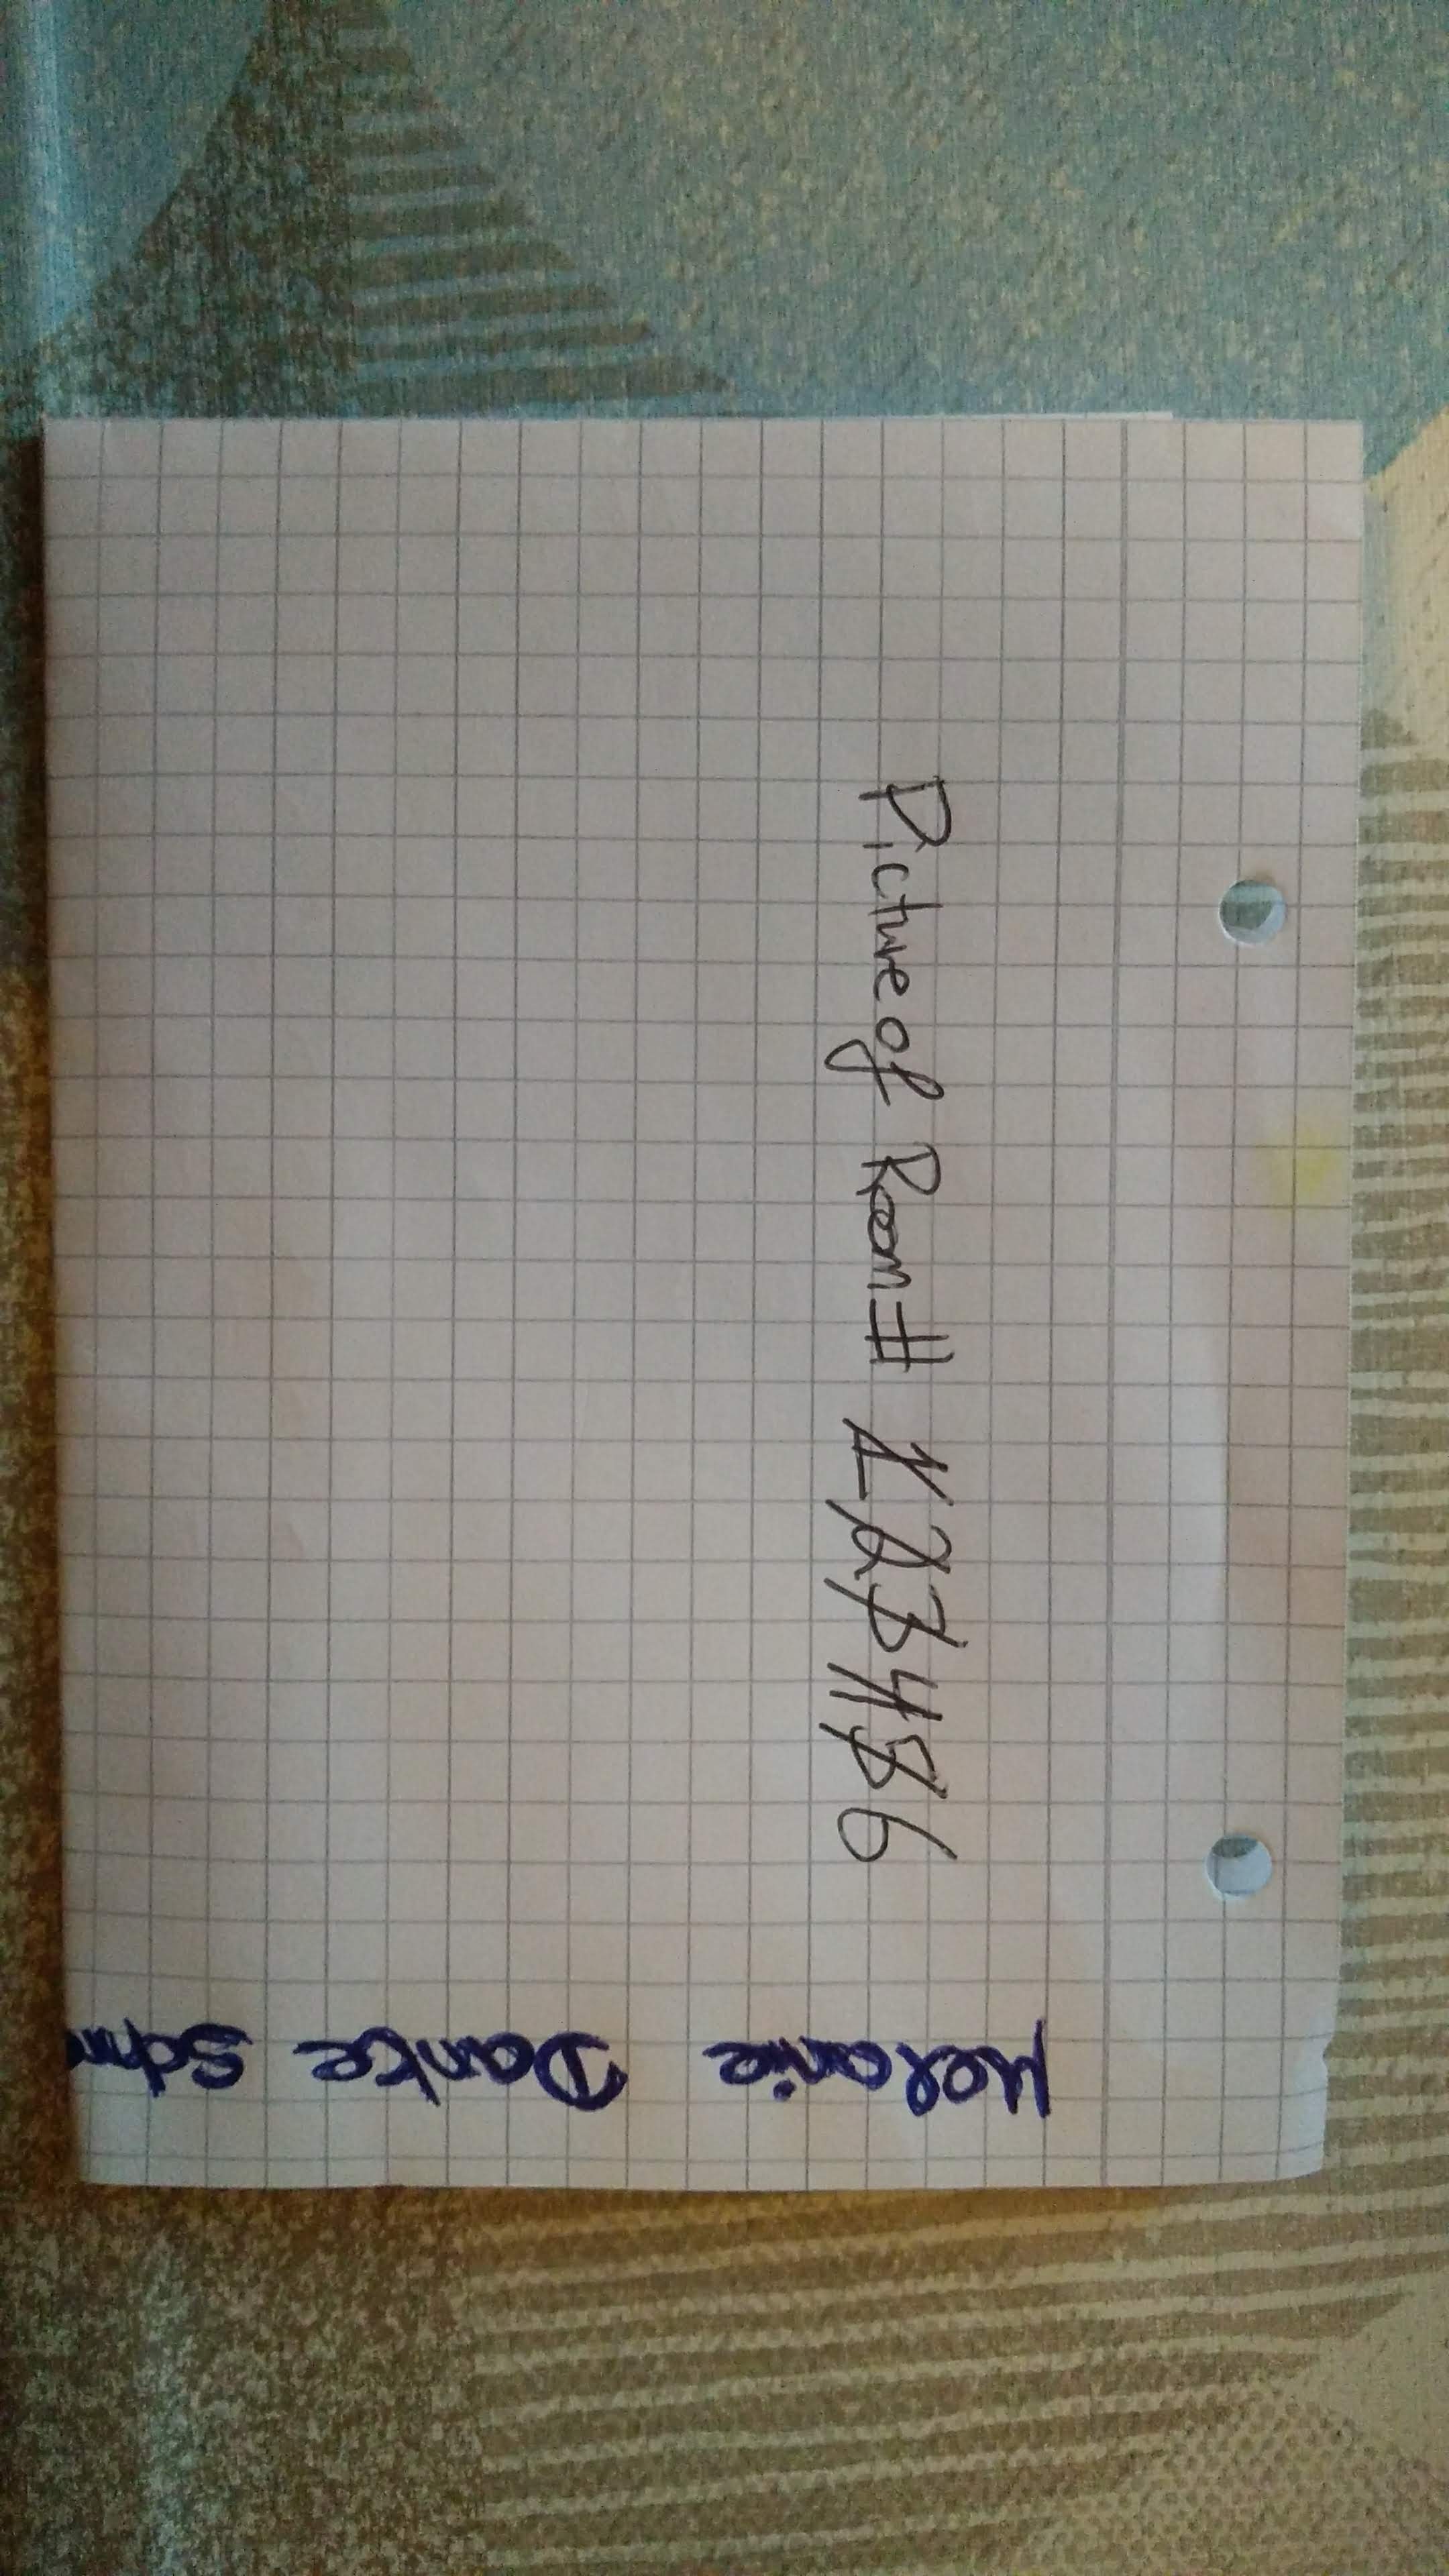 Picture of Room # 1 2 3 4 5 6
Melanie Dante Schm